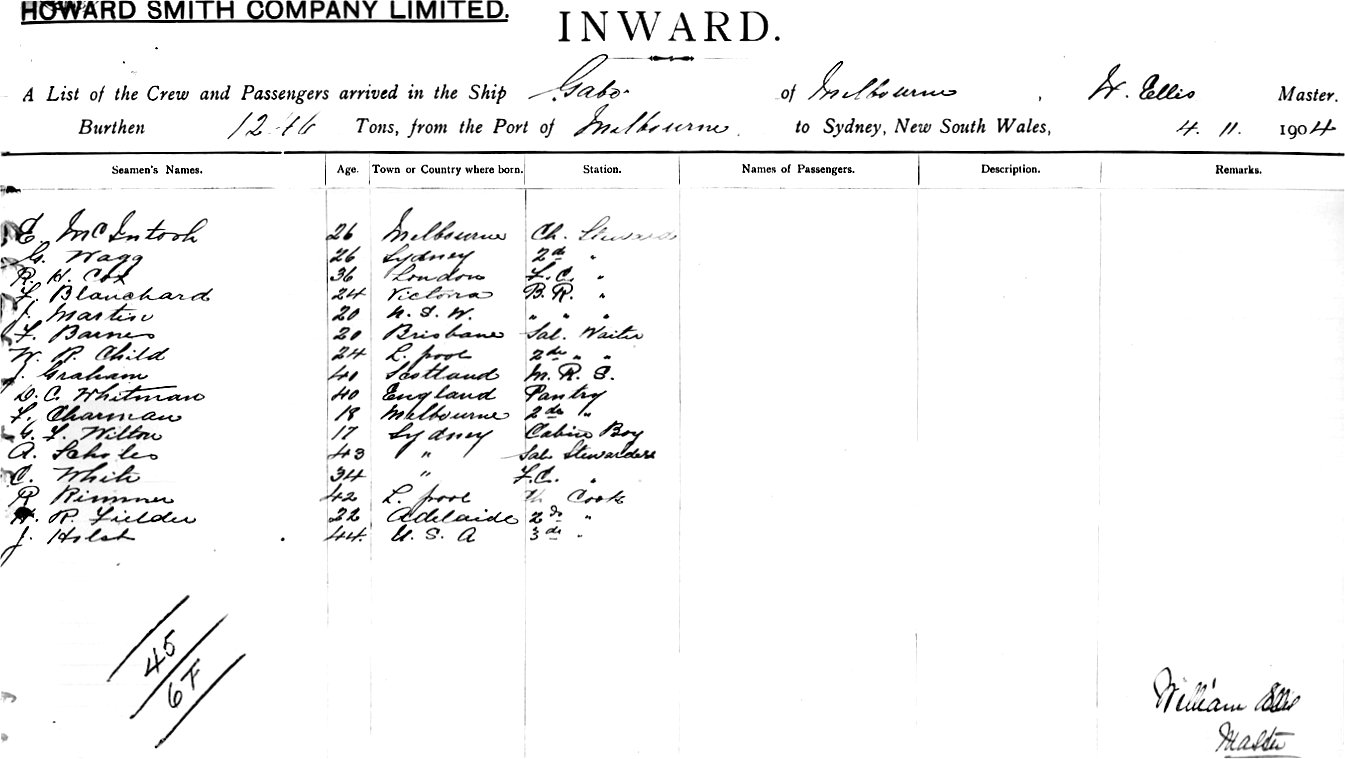 HOWARD SMITH COMPANY LIMITED.
INWARD.
A List of the Crew and Passengers arrived in the Ship Gabo of Melbourne, W. Ellis Master.
Burthen 1246 Tons, from the Port of Melbourne to Sydney, New South Wales, 4. 11. 1904
Seamen's Names. Age. Town or Country where born. Station. Names of Passengers. Description. Remarks.
E. McIntosh 26 Melbourne Ch. Steward
G. Wagg 26 Sydney 2nd "
R. H. Cox 36 London F.C. "
F. Blanchard 24 Victoria B.R. "
J. Martin 20 N.S.W. " " "
F. Barnes 20 Brisbane Sal. Waiter
W. R. Child 24 L.pool 2nd " "
J. Graham 40 Scotland M.R.S.
D. C. Whitman 40 England Pantry
F. Charman 18 Melbourne 2nd "
G. F. Wilton 17 Sydney Cabin Boy
A. Scholes 43 " Sal. Stewardess
C. White 34 " F.C. "
R Rimmer 42 L.pool Ch. Cook
H. R. Fielder 22 Adelaide 2nd "
J. Holst 44 U.S.A 3rd "
45
6F
William Ellis
Master